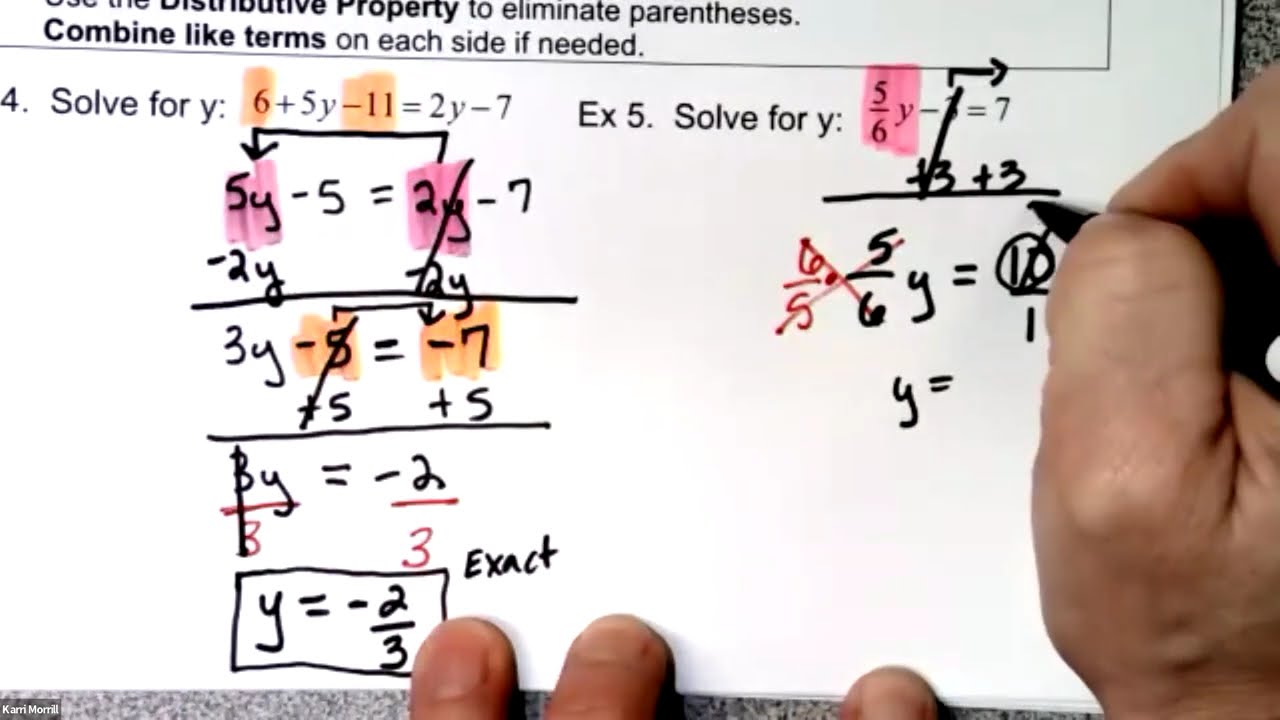 Use the Distributive Property to eliminate parentheses.
Combine like terms on each side if needed.
4. Solve for y: 6+5y−11=2y−7
5y - 5 = 2y - 7
-2y -2y
3y - 5 = -7
+5 +5
3y = -2
3 3
y = -2/3 Exact
Ex 5. Solve for y: 5/6 y − 3 = 7
+3 +3
6/5 · 5/6 y = 10/1
y =
Karri Morrill